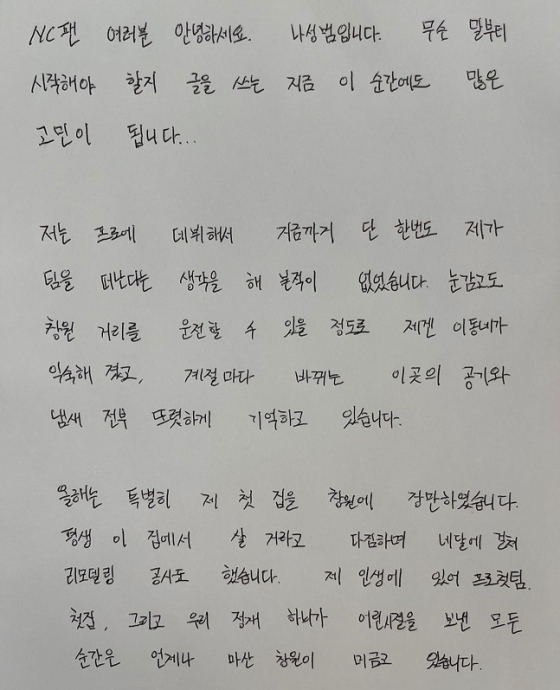 NC팬 여러분 안녕하세요. 나성범입니다. 무슨 말부터
시작해야 할지 글을 쓰는 지금 이 순간에도 많은
고민이 됩니다...
저는 프로에 데뷔해서 지금까지 단 한번도 제가
팀을 떠난다는 생각을 해 본적이 없었습니다. 눈감고도
창원 거리를 운전할 수 있을 정도로 제겐 이동네가
익숙해 졌고, 계절마다 바뀌는 이곳의 공기와
냄새 전부 또렷하게 기억하고 있습니다.
올해는 특별히 제 첫 집을 창원에 장만하였습니다.
평생 이 집에서 살 거라고 다짐하며 네달에 걸쳐
리모델링 공사도 했습니다. 제 인생에 있어 프로첫팀,
첫집, 그리고 우리 정재 하나가 어린시절을 보낸 모든
순간은 언제나 마산 창원이 미금고 있습니다.